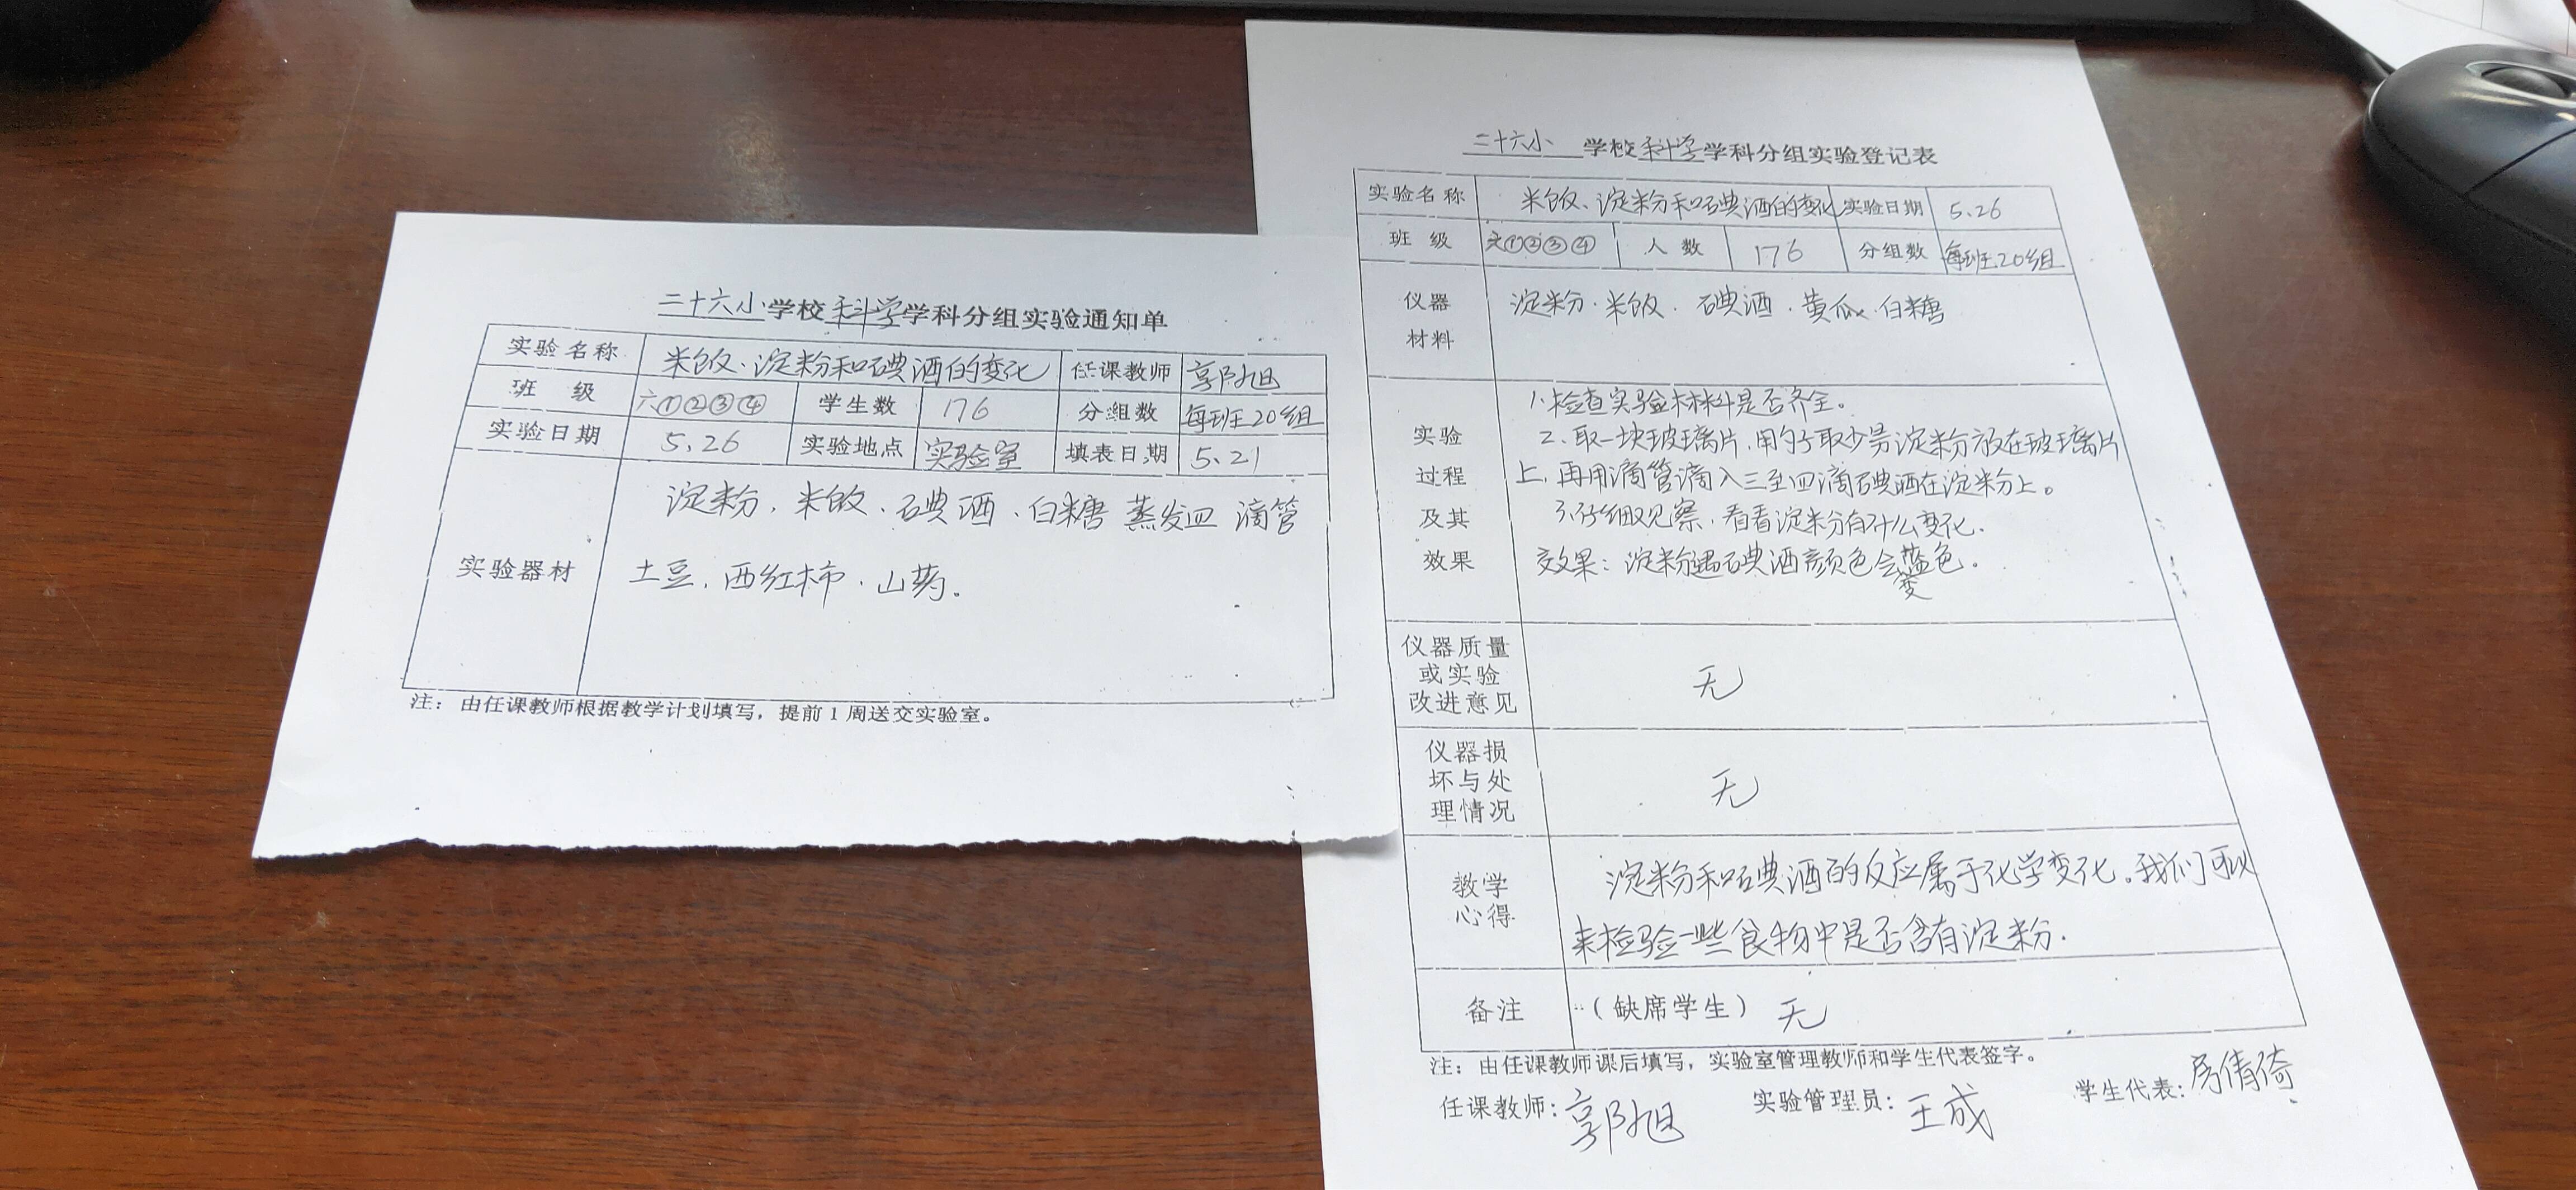 二十六小学校科学学科分组实验通知单
实验名称 米饭、淀粉和碘酒的变化 任课教师 郭旭
班 级 六①②③④ 学生数 176 分组数 每班20组
实验日期 5.26 实验地点 实验室 填表日期 5.21
淀粉、米饭、碘酒、白糖 蒸发皿 滴管
实验器材
土豆、西红柿、山药。
注：由任课教师根据教学计划填写，提前1周送交实验室。
二十六小 学校科学学科分组实验登记表
实验名称 米饭、淀粉和碘酒的变化 实验日期 5.26
班 级 六①②③④ 人 数 176 分组数 每班20组
仪器
材料
淀粉、米饭、碘酒、黄瓜、白糖
实验
过程
及其
效果
1.检查实验材料是否齐全。
2.取一块玻璃片，用勺子取少量淀粉放在玻璃片
上，再用滴管滴入三至四滴碘酒在淀粉上。
3.仔细观察，看看淀粉有什么变化。
效果：淀粉遇碘酒颜色会变蓝色。
仪器质量
或实验
改进意见
无
仪器损
坏与处
理情况
无
教学
心得
淀粉和碘酒的反应属于化学变化。我们可以
来检验一些食物中是否含有淀粉.
备注 （缺席学生） 无
注：由任课教师课后填写，实验室管理教师和学生代表签字。
任课教师：郭旭 实验管理员：王成 学生代表：倩倚